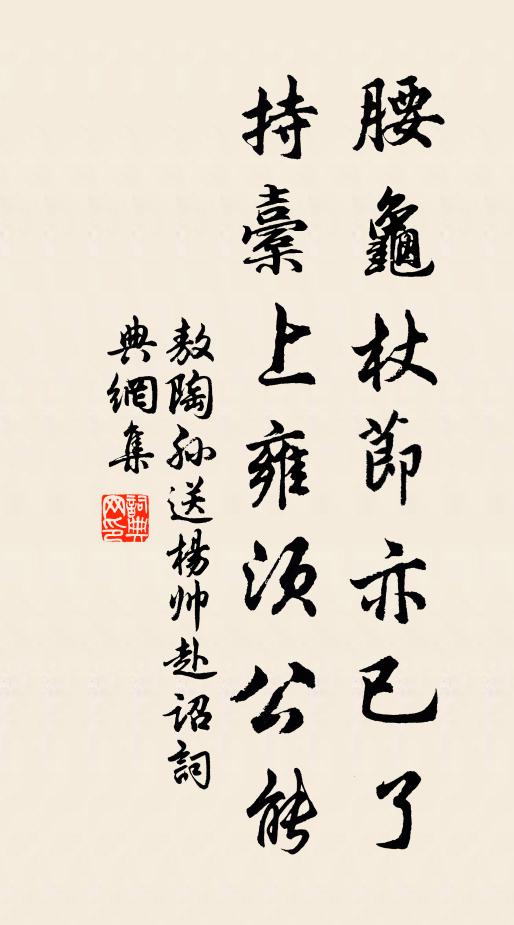 腰龜杖節亦已了
持橐上雍須公能
敖陶孫送楊帅赴诏詞
典網集
詞典网印